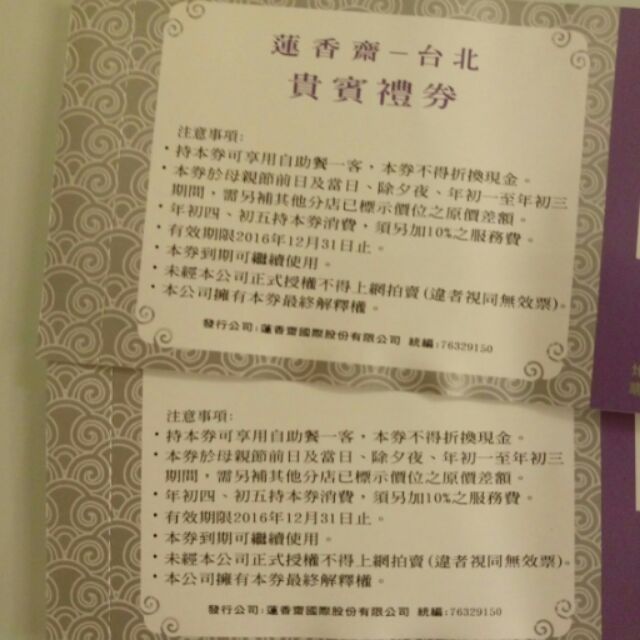 蓮香齋－台北
貴賓禮券
注意事項:
・持本券可享用自助餐一客，本券不得折換現金。
・本券於母親節前日及當日、除夕夜、年初一至年初三
期間，需另補其他分店已標示價位之原價差額。
・年初四、初五持本券消費，須另加10%之服務費。
・有效期限2016年12月31日止。
・本券到期可繼續使用。
・未經本公司正式授權不得上網拍賣(違者視同無效票)。
・本公司擁有本券最終解釋權。
發行公司:蓮香齋國際股份有限公司 統編:76329150
注意事項:
・持本券可享用自助餐一客，本券不得折換現金。
・本券於母親節前日及當日、除夕夜、年初一至年初三
期間，需另補其他分店已標示價位之原價差額。
・年初四、初五持本券消費，須另加10%之服務費。
・有效期限2016年12月31日止。
・本券到期可繼續使用。
・未經本公司正式授權不得上網拍賣(違者視同無效票)。
・本公司擁有本券最終解釋權。
發行公司:蓮香齋國際股份有限公司 統編:76329150